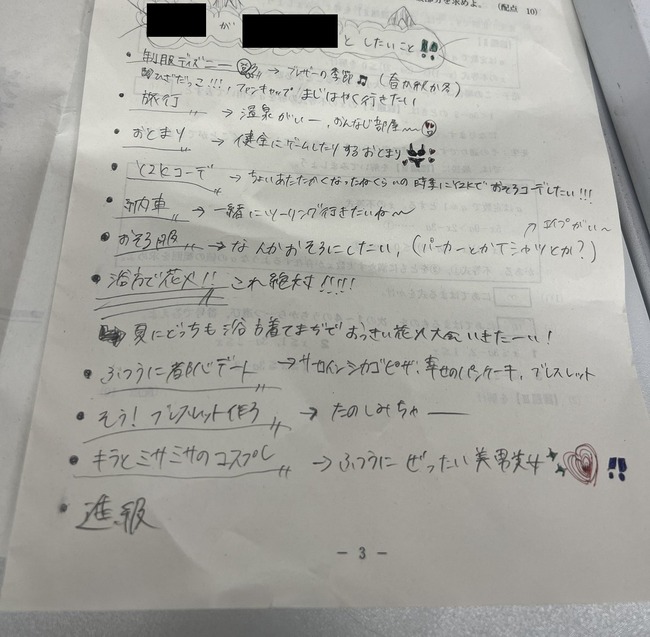 (配点 10)
が としたいこと!!
・制服ディズニー → ブレザーの季節♫ (春か秋か冬)
ファンキャップ まじはやく行きたい
・旅行 → 温泉がいー、おんなじ部屋〜
・おとまり → 健全にゲームしたりするおとまり
・Y2Kコーデ → ちょいあたたかくなったねくらいの時季にY2Kでおそろコーデしたい!!!
・納車 → 一緒にツーリング行きたいね〜
エイプがい〜
・おそろ服 → なんかおそろにしたい、(パーカーとかTシャツとか?)
・浴衣で花火!! これ絶対!!!!
夏にどっちも浴衣着てまぢでおっきい花火大会いきたーい!
・ふつうに都心デート → サーロインシカゴピザ、幸せのパンケーキ、ブレスレット
・そう! ブレスレット作ろ → たのしみちゃ──
・キラとミサミサのコスプレ → ふつうに ぜったい美男美女 !!
・進級
- 3 -